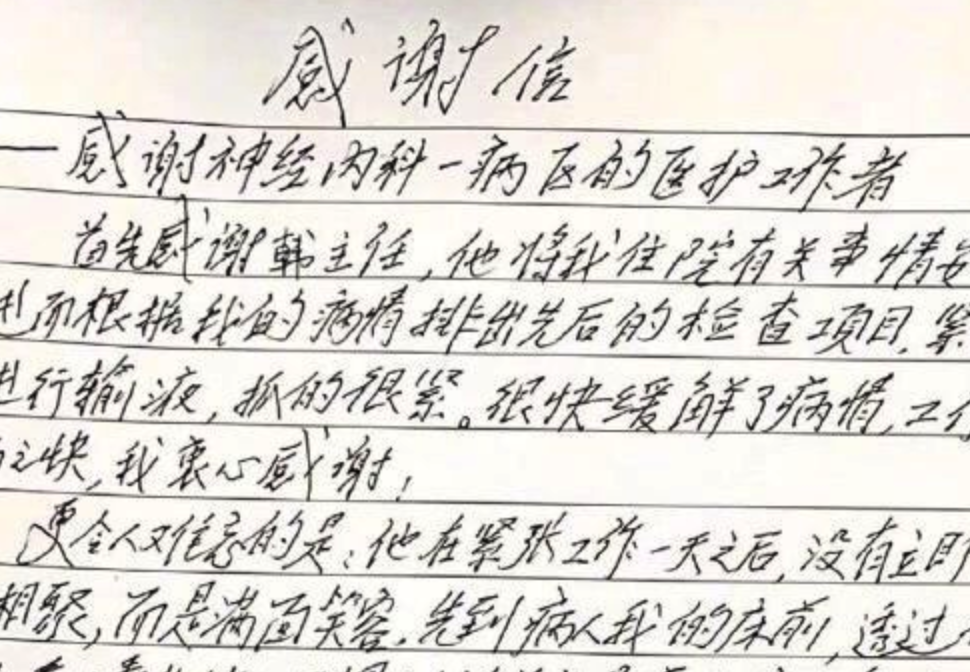 感谢信
——感谢神经内科一病区的医护工作者
首先感谢韩主任,他将我住院有关事情安
而根据我的病情排出先后的检查项目.紧
进行输液,抓的很紧。很快缓解了病情,工作
之快,我衷心感谢!
更令人难忘的是:他在紧张工作一天之后,没有立即
相聚,而是满面笑容.先到病人我的床前,透过